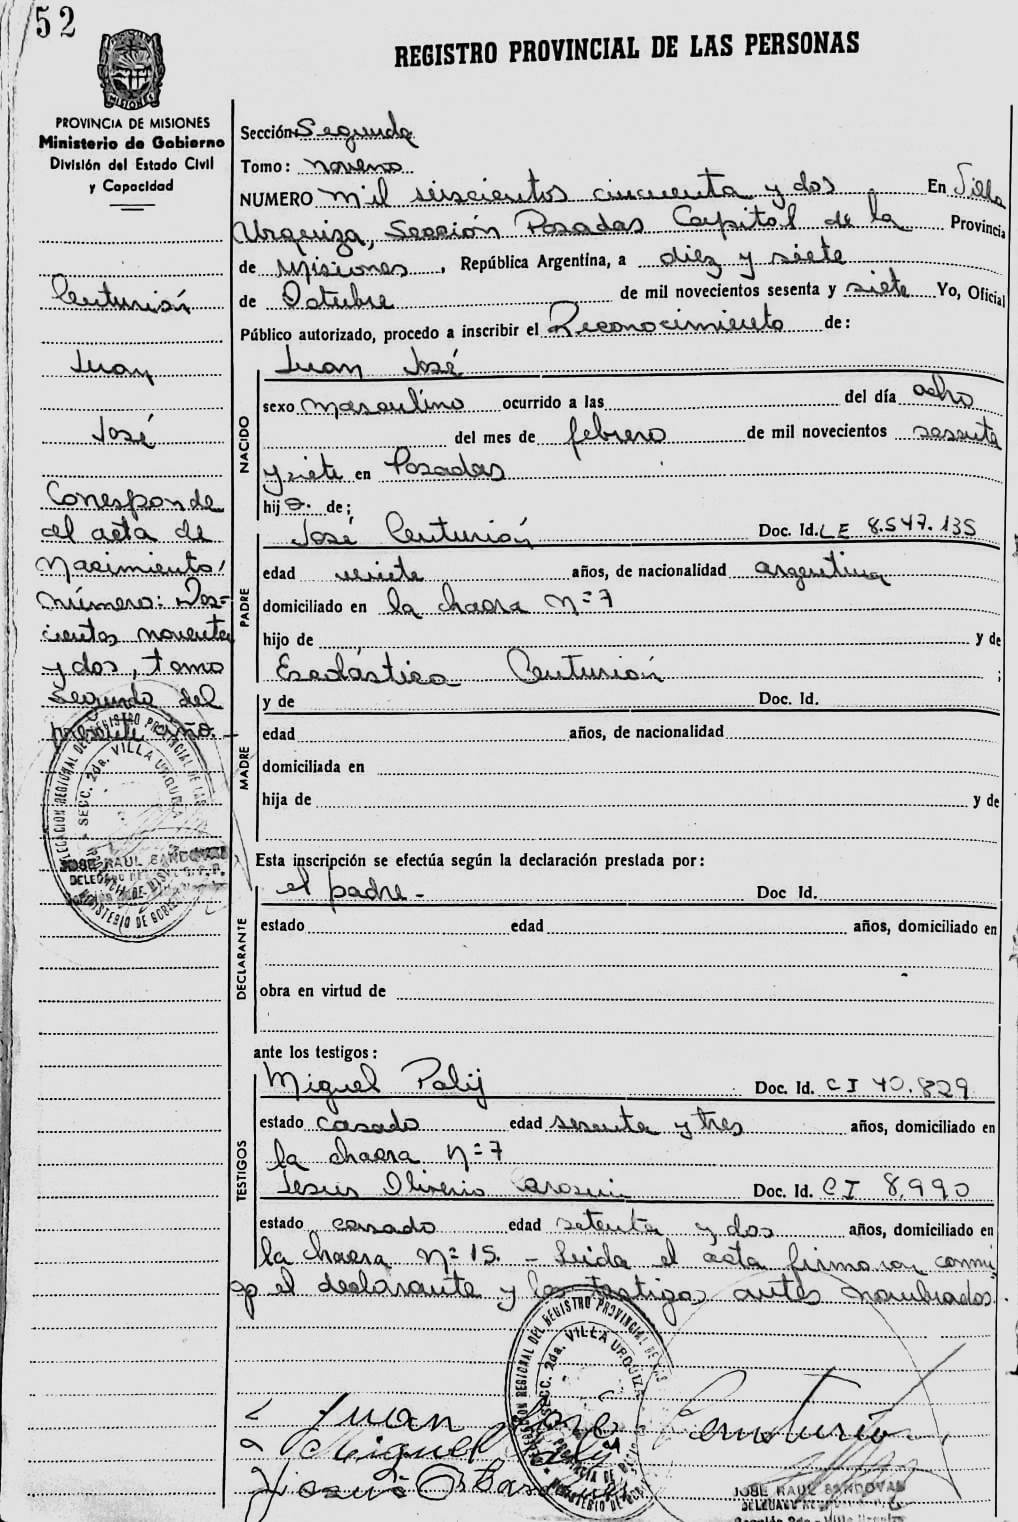 52
REGISTRO PROVINCIAL DE LAS PERSONAS
MISIONES
PROVINCIA DE MISIONES
Ministerio de Gobierno
División del Estado Civil
y Capacidad
Centurión
Juan
José
Corresponde
al acta de
Nacimiento,
número: Dos=
cientos noventa
y dos, tomo
Segundo del
presente año.-
DELEGACION REGIONAL DEL REGISTRO PROVINCIAL DE LAS
SECC. 2da. VILLA URQUIZA
MINISTERIO DE GOBIERNO
JOSE RAUL SANDOVAL
Sección: Segunda
Tomo: noveno
NUMERO Mil seiscientos cincuenta y dos En Villa
Urquiza, Sección Posadas Capital de la Provincia
de Misiones, República Argentina, a diez y siete
de Octubre de mil novecientos sesenta y siete Yo, Oficial
Público autorizado, procedo a inscribir el Reconocimiento de:
NACIDO
Juan José
sexo masculino ocurrido a las del día ocho
del mes de febrero de mil novecientos sesenta
y siete en Posadas
hijo de;
PADRE
José Centurión Doc. Id. LE 8.547.135
edad veinte años, de nacionalidad argentina
domiciliado en la chacra nº 7
hijo de y de
Escolástica Centurión ;
MADRE
y de Doc. Id.
edad años, de nacionalidad
domiciliada en
hija de y de
Esta inscripción se efectúa según la declaración prestada por:
DECLARANTE
el padre - Doc Id.
estado edad años, domiciliado en
obra en virtud de
ante los testigos:
TESTIGOS
Miguel Palij Doc. Id. CI 40.829
estado casado edad sesenta y tres años, domiciliado en
la chacra nº 7
Jesús Oliverio Doc. Id. CI 8.990
estado casado edad setenta y dos años, domiciliado en
la chacra nº 15. - Leída el acta firmaron conmi-
go el declarante y los testigos antes nombrados.
DELEGACION REGIONAL DEL REGISTRO PROVINCIAL DE LAS
SECC. 2da. VILLA URQUIZA
PROVINCIA DE MISIONES
MINISTERIO DE GOBIERNO
Juan José Centurión
Miguel Palij
JOSE RAUL SANDOVAL